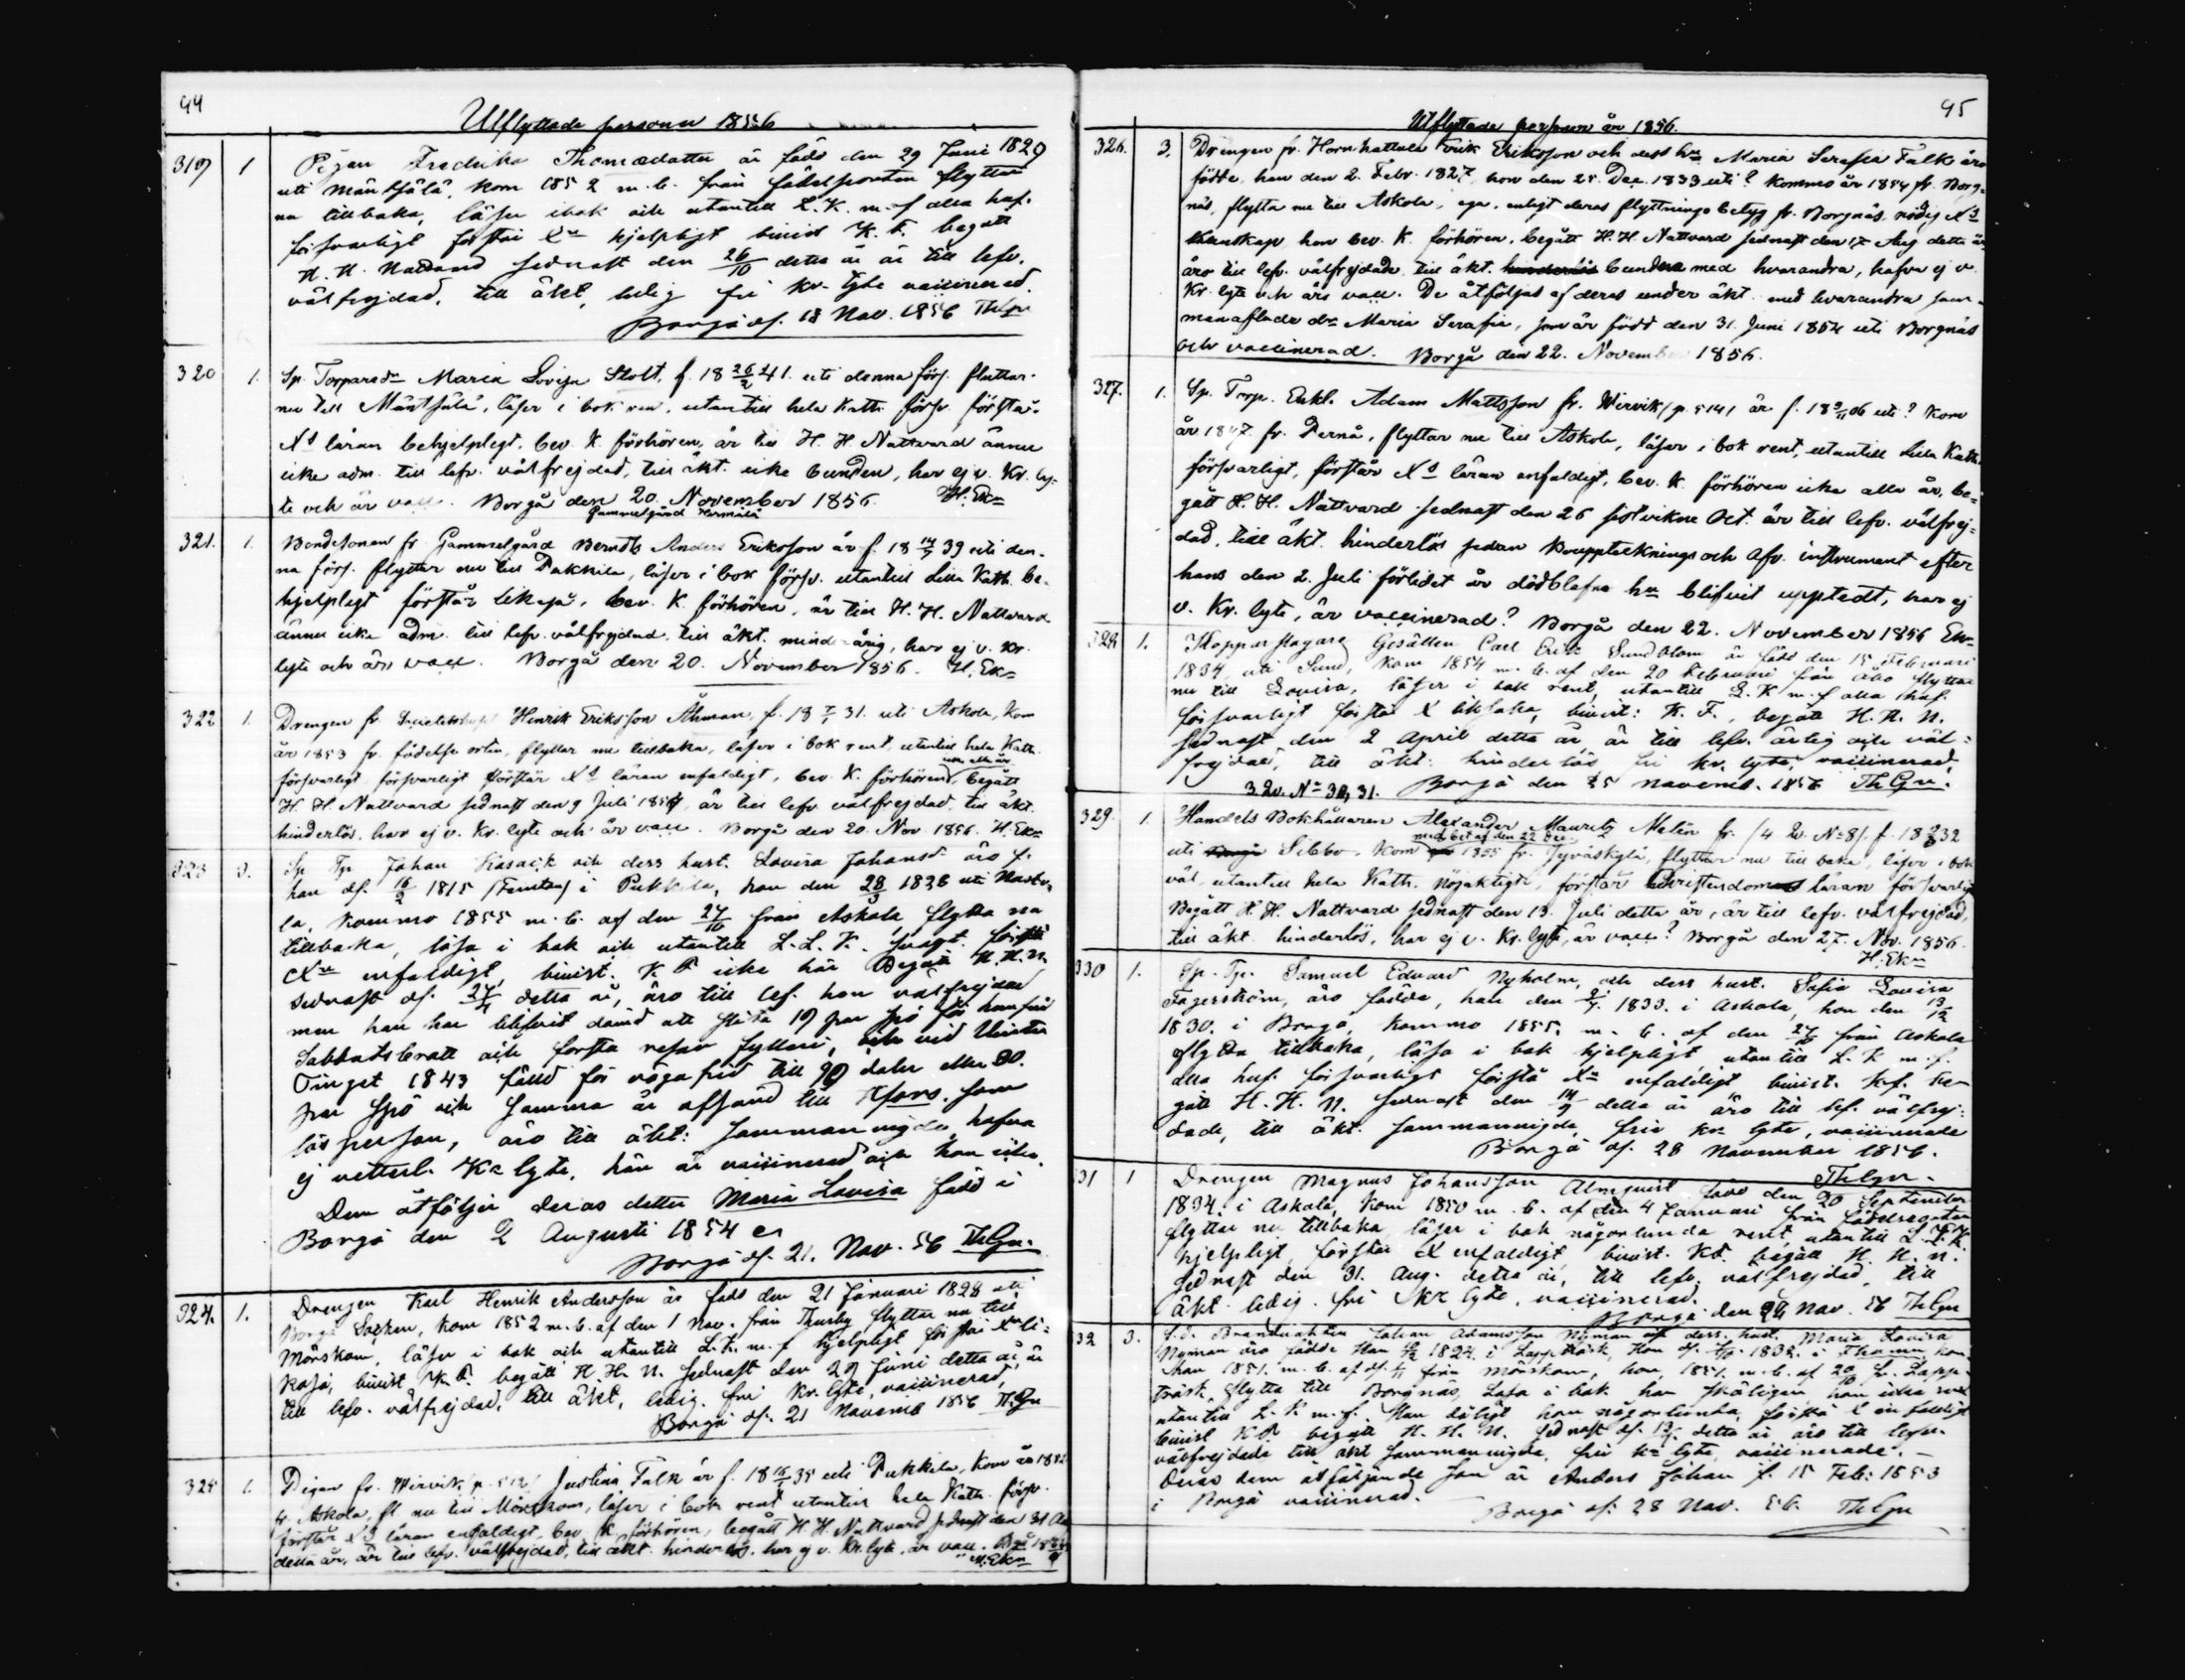 94
Utflyttade personer 1856
319 1 Pigan Fredrika Thomasdotter är född den 29 Juni 1829
uti Mäntsälä, kom 1852 m. b. från födelseorten flyttar
nu tillbaka, läser i bok och utantill L. K. m. f alla huf.
försvarligt förstår Xn hjelpligt bivist K. F. begått
H. H. Nattvard sednast den 26/10 detta år är till lefv.
välfrejdad, till äkt. ledig fri Kr. lyte vaccinerad.
Borgå d. 18 Nov. 1856 ThGn
320 1. Sp. Torparedr Maria Lovisa Stolt, f. 18 26/2 41. uti denna förs. flyttar
nu till Mäntsälä, läser i bok ren, utantill hela Kath. försv. förstår
Xs läran behjelpligt, bev. K. förhören, är till H. H. Nattvard ännu
icke adm. till lefv. välfrejdad, till äkt. icke bunden, har ej v. Kr. ly-
te och är vacc. Borgå den 20. November 1856. H. Ekn
321. 1. Bondesonen fr. Gammelgård Berndts Anders Eriksson är f. 18 14/5 39 uti den-
na förs. flyttar nu till Pukkila, läser i bok försv. utantill Lilla Kath. be-
hjelpligt förstår likaså, bev. K. förhören, är till H. H. Nattvard
ännu icke adm. till lefv. välfrejdad, till äkt. minderårig, har ej v. Kr.
lyte och är vacc. Borgå den 20. November 1856. H. Ekn
322 1. Drengen fr. Henrik Eriksson Åhman, f. 18 7/1 31. uti Askola, kom
år 1853 fr. födelse orten, flyttar nu tillbaka, läser i bok rent, utantill hela Kath.
försvarligt försvarligt förstår Xs läran enfaldigt, bev. K. förhören, begått
H. H. Nattvard sednast den 9 Juli 1854, är till lefv. välfrejdad, till äkt.
hinderlös, har ej v. Kr. lyte och är vacc. Borgå den 20. Nov. 1856. H. Ekn
323 3. Sp Tp Johan Kasack och dess hust. Lovisa Johansdr äro f.
han d. 16/2 1815 i Pukkila, hon den 28/3 1826 uti
la, kommo 1855 m. b. af den 27/10 från Askola, flytta nu
tillbaka, läsa i bok och utantill L. L. K. svagt. förstå
Xn enfaldigt, bivist. K. F. icke här Begått H. H. N.
sednast d. 27/4 detta år, äro till lef. hon välfrejdad
men han har blifvit dömd att slita 19 par spö för
Sabbatsbrott och första resan fylleri, och vid Vinter
Tinget 1843 fälld för våga frid till 90 daler eller 30.
par spö och samma år afsänd till Hfors. som
lösperson, äro till äkt: sammanvigda, hafva
ej vetterl. Kr lyte, han är vaccinerad och hon icke.
Dem åtföljer deras dotter Maria Lovisa född i
Borgå den 2 Augusti 1854
Borgå d. 21. Nov. 56 ThGn.
324. 1. Drengen Karl Henrik Andersson är född den 21 Januari 1828 uti
Borgå Socken, kom 1852 m. b. af den 1 Nov. från Thusby flyttar nu till
Mörskom, läser i bok och utantill L. K. m. f hjelpligt förstår Xn li-
kaså, bivist K. F. begått H. H. N. sednast den 29 Juni detta år, är
till lefv. välfrejdad, till äkt. ledig. fri Kr. lyte, vaccinerad,
Borgå d. 21 Novemb 1856 ThGn
325 1. Pigan fr. Wirvik (p. 512) Justina Falk är f. 18 16/ 35 uti Pukkila, kom år 185
fr. Askola, fl. nu till Mörskom, läser i bok rent utantill hela Kath. försv.
förstår Xs läran enfaldigt, bev. K. förhören, begått H. H. Nattvard sednast den 31 Au
detta år, är till lefv. välfrejdad, till äkt. hinderlös, har ej v. Kr. lyte, är vacc.
H. Ekn
95
Utflyttade personer år 1856.
326. 3. Drengen fr. Hornhattula Erik Eriksson och dess hu Maria Serafia Falk äro
födde, han den 2. Febr. 1827, hon den 25. Dec. 1833 uti? kommo år 1854 fr. Borg-
näs, flytta nu till Askola, ega, enligt deras flyttningsbetyg fr. Borgnäs, nödig Xs
kunskap, hon bev. K. förhören, begått H. H. Nattvard sednast den 17 Aug. detta år
äro till lefv. välfrejdade, till äkt. bundna med hvarandra, hafva ej v.
Kr. lyte och äro vacc. De åtföljas af deras under äkt. med hvarandra sam-
manaflade dr Maria Serafia, som är född den 31. Juni 1854 uti Borgnäs
och vaccinerad. Borgå den 22. November 1856.
327. 1. Sp. Torp. Enkl. Adam Mattsson fr. Wirvik (p. 514) är f. 18 9/11 06 uti? kom
år 1847 fr. Pernå, flyttar nu till Askola, läser i bok rent, utantill Lilla Kath.
försvarligt, förstår Xs läran enfaldigt, bev. K. förhören icke alla år, be-
gått H. H. Nattvard sednast den 26 sistvikne Oct. är till lefv. välfrej-
dad, till äkt. hinderlös sedan Bouppteknings och Afv. instrument efter
hans den 2. Juli förlidet år dödblefne hu blifvit upptedt, har ej
v. Kr. lyte, är vaccinerad? Borgå den 22. November 1856 Ekn
328 1. Kopparslagare Gesällen Carl Erik Sundblom är född den 15 Februari
1834 uti Sund, kom 1854 m. b. af den 20 Februari från Åbo flyttar
nu till Lovisa, läser i bok rent, utantill L. K m. f alla huf.
försvarligt förstår X liksaka, bivist: K. F., begått H. H. N.
sednast den 2 April detta år, är till lefv. ärlig och väl-
frejdad, till äkt: hinderlös fri kr. lyte, vaccinerad.
3 Qv. No 30, 31. Borgå den 25 Novemb. 1856 ThGn.
329. 1. Handels Bokhållaren Alexander Mauritz Melin fr. (4 Qv. No 8) f. 18 32
med bet af den 22 Dec.
uti Sibbo. kom 1855 fr. Jyväskylä, flyttar nu tillbaka, läser i bok
väl, utantill hela Kath. nöjaktigt, förstår Christendoms läran försvarligt
Begått H. H. Nattvard sednast den 13. Juli detta år, är till lefv. välfrejdad,
till äkt. hinderlös, har ej v. Kr. lyte, är vacc? Borgå den 27. Nov. 1856.
H. Ekn
330 1. Sp. Tp. Samuel Edvard Nyholm, och dess hust. Sofia Lovisa
Fagerström, äro födda, han den 9/7. 1833. i Askola, hon den 13/12
1830. i Borgå, kommo 1855. m. b. af den 27/10 från Askola
flytta tillbaka, läsa i bok hjelpligt utantill L. K m. f.
alla huf. försvarligt förstå Xn enfaldigt bivist. K. f. be-
gått H. H. N. sednast den 14/9 detta år äro till lef. välfrej-
dade, till äkt. sammanvigda, fria kr lyte, vaccinerade
Borgå d. 28 November 1856.
ThGn.
31 1 Drengen Magnus Johansson Almqvist född den 20 September
1834. i Askola, kom 1850 m. b. af den 4 Januari från födelseorten
flyttar nu tillbaka, läser i bok någorlunda rent, utantill L. L. K.
hjelpligt, förstår X enfaldigt bivist. K F. begått H. H. N.
sednast den 31. Aug. detta år, till lefv. välfrejdad, till
äkt. ledig. fri Kr lyte, vaccinerad.
Borgå den 28 Nov. 56 ThGn
32 3. Johan Adamsson Nyman och dess. hust. Maria Lovisa
Nyman äro födde Han 1824. i Lappträsk, Hon 1832. i
han 1851. m. b. af d. från Mörskom, hon 1851. m. b. af 20/10 fr. Lapp-
träsk. flytta till Borgnäs, Läsa i bok han skäligen hon icke
utantill L. K. m. f. Han dåligt hon någorlunda, förstå X enfaldigt
bivist K F begått H. H. N. sednast d. 13/ detta år äro till lefv.
välfrejdade till äkt sammanvigda, fria kr lyte, vaccinerade. –
Deras dem åtföljande Son är Anders Johan f. 15 Feb: 1853
i Borgå vaccinerad.
Borgå d: 28 Nov. 56. ThGn